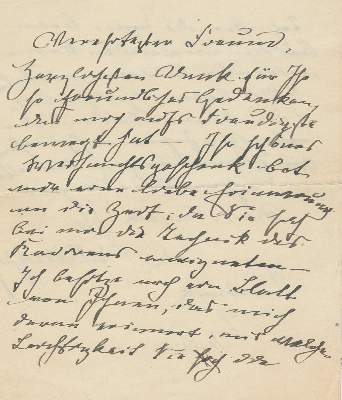 Verehrtester Freund,
Herzlichsten Dank für Ihr
so freundliches Gedenken,
das mich aufs Freudigste
bewegt hat — Ihr schönes
Weihnachtsgeschenk bot
mir eine liebe Erinnerung
an die Zeit, da Sie sich
bei mir die Technik des
Radierens aneigneten —
Ich besitze noch ein Blatt
von Ihnen, das mich
daran erinnert, mit welcher
Leichtigkeit Sie sich die